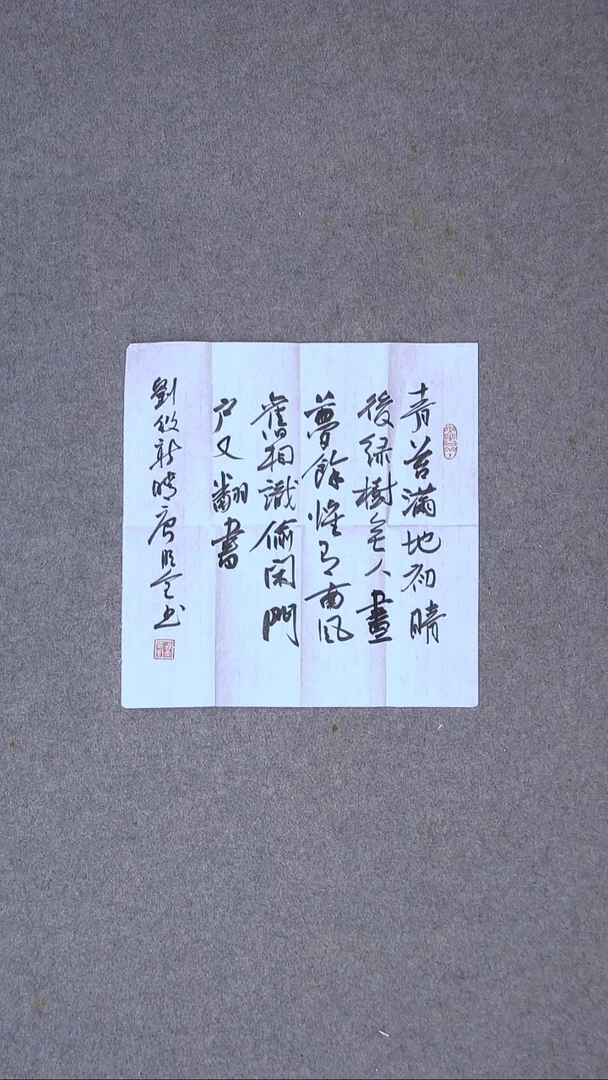 青苔滿地初晴
後綠樹無人晝
夢餘惟有南風
舊相識偷開門
戶又翻書
劉攽新晴唐 書